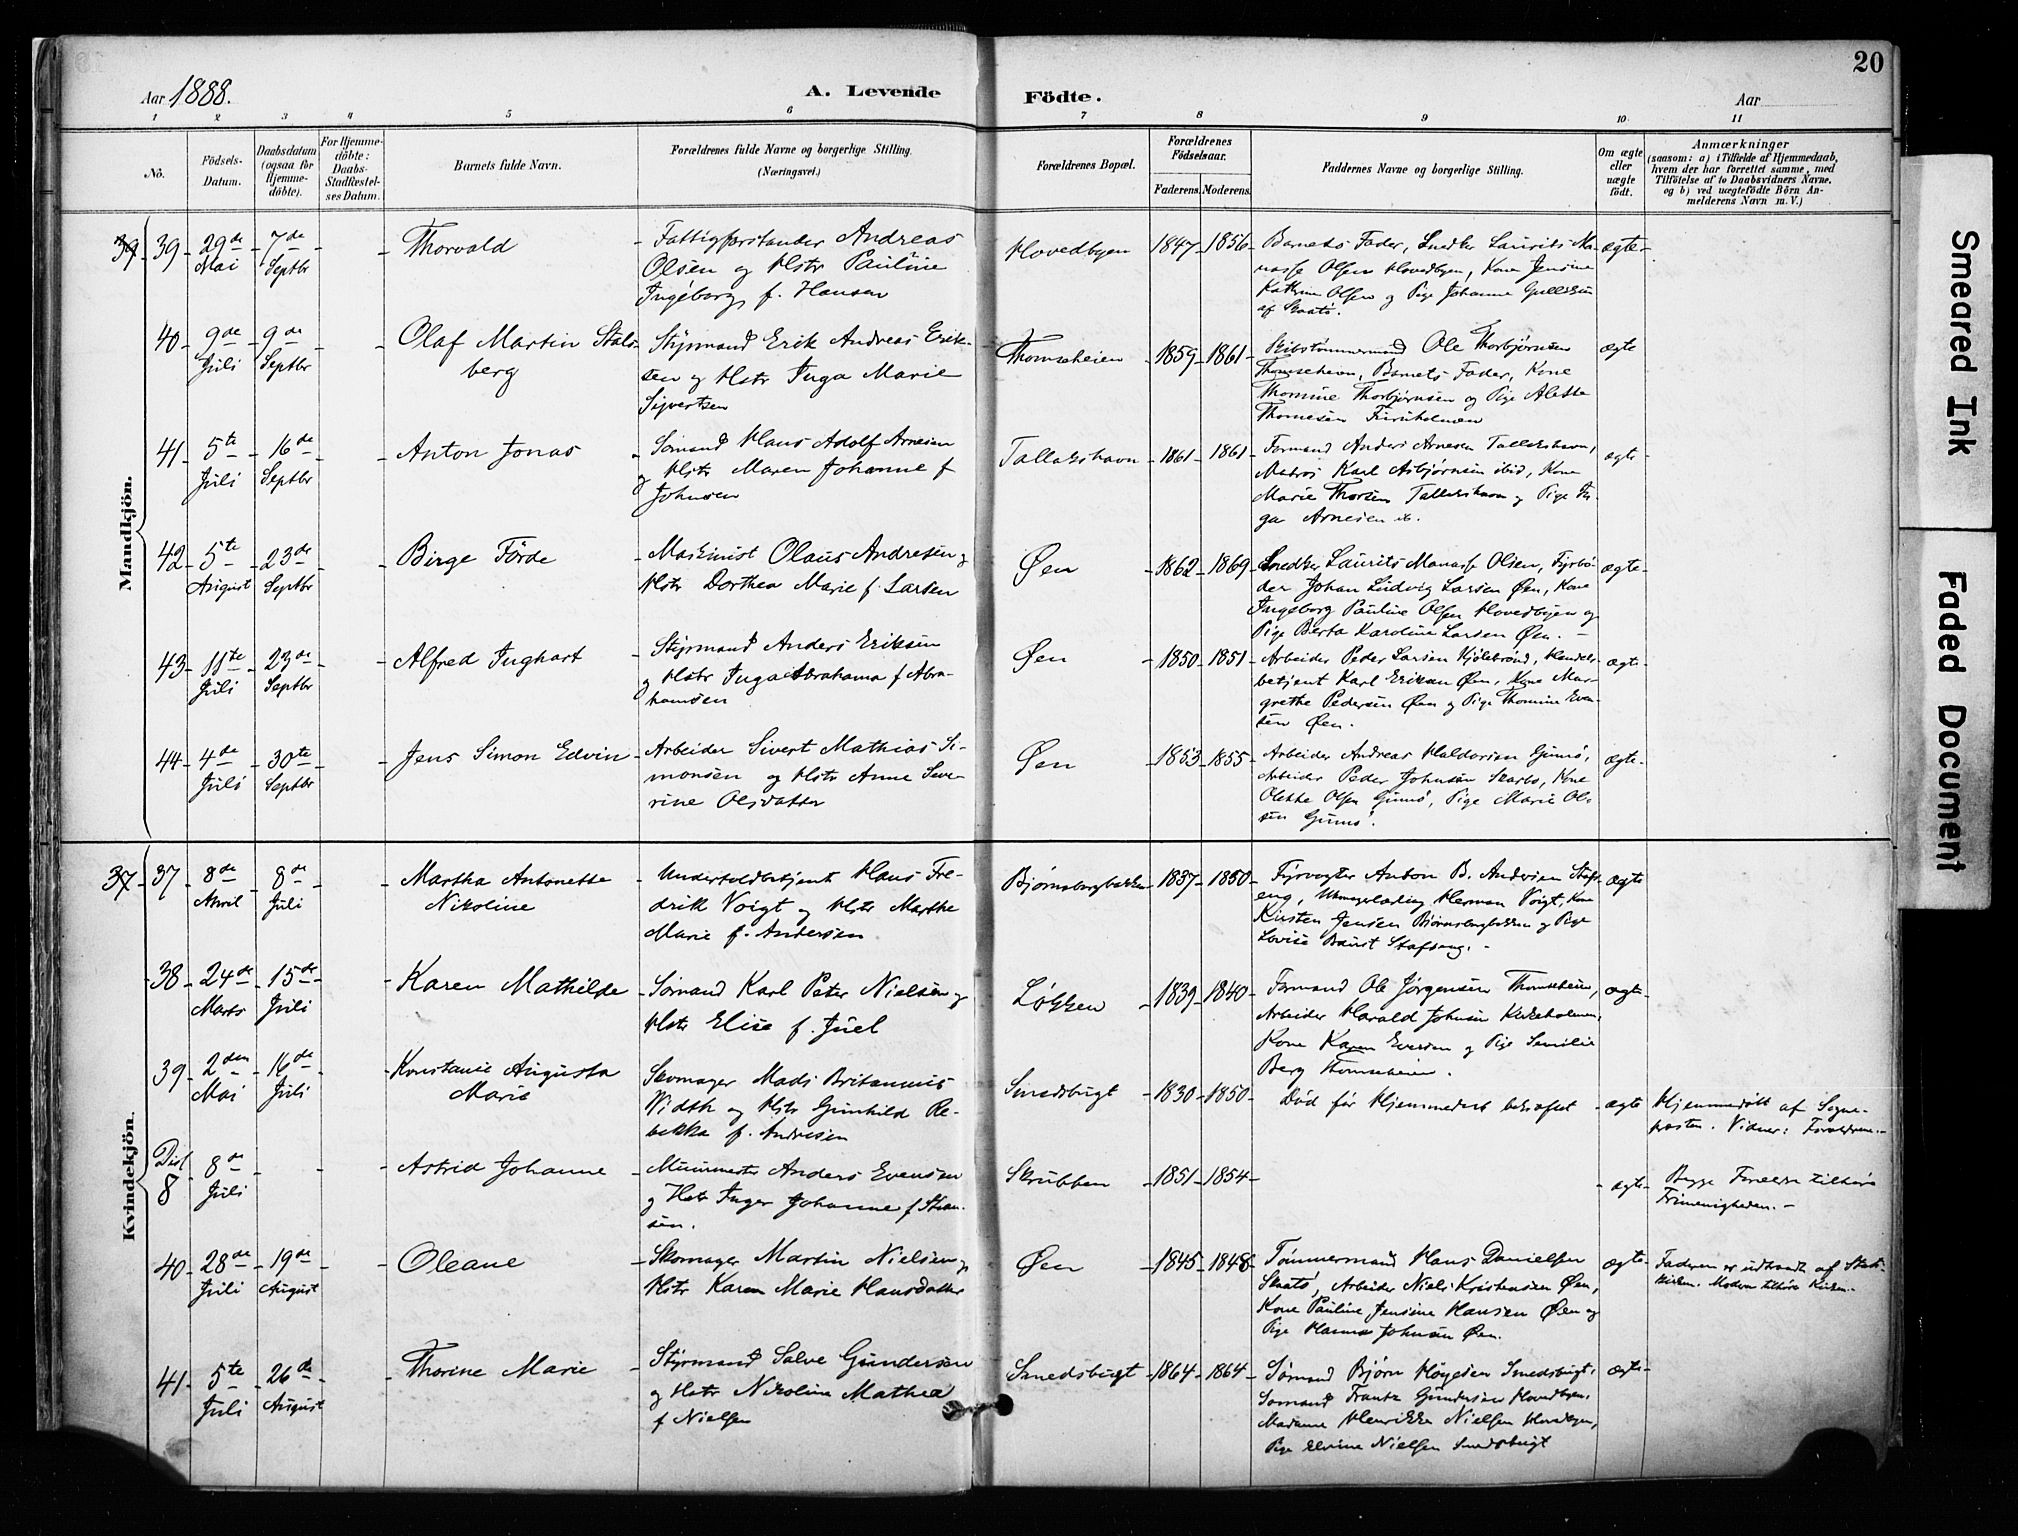 20
Aar 1888.
A. Levende
Födte.
Aar
1 2 3 4 5 6 7 8 9 10 11
No.
Födsels-
Datum.
Daabsdatum
(ogsaa for
Hjemme-
döbte).
For Hjemme-
döbte:
Daabs-
Stadfæstel-
ses Datum.
Barnets fulde Navn.
Forældrenes fulde Navne og borgerlige Stilling.
(Næringsvei.)
Forældrenes Bopæl.
Forældrenes
Födselsaar.
Faderens. Moderens.
Faddernes Navne og borgerlige Stilling.
Om ægte
eller
uægte
födt.
Anmærkninger
(saasom: a) i Tilfælde af Hjemmedaab,
hvem der har forrettet samme, med
Tilföielse af to Daabsvidners Navne,
og b) ved uægtefödte Börn An-
melderens Navn m. V.)
Mandkjön.
39 39 29de Mai 7de Septbr
Thorvald
Fattigforstander Andreas
Olsen og Hstr Pauline
Ingeborg f. Hansen
Hovedbyen 1847 1856
Barnets Fader, Snedker Laurits Ma-
nasse Olsen Hovedbyen, Kone Jensine
Kathrine Olsen og Pige Johanne
af Skaatø.
ægte
40 9de Juli 9de Septbr
Olaf Martin Stals-
berg
Styrmand Erik Andreas Erik-
sen og Hstr Inga Marie
Sivertsen
Thomseheien 1859 1861
Skibstømmermand Ole Thorbjørnsen
Barnets Fader, Kone
Thomine Thorbjørnsen og Pige Alette
Thomesen
ægte
41 5te Juli 16de Septbr
Anton Jonas
Sømand Hans Adolf Arnesen
og Hstr Maren Johanne f
Johnsen
Tallakshavn 1861 1861
Formand Anders Arnesen Tallakshavn,
Matros Karl Asbjørnsen ibid, Kone
Marie Thorsen Tallakshavn og Pige In-
ga Arnesen ib.
ægte
42 5te August 23de Septbr
Birge Förde
Maskinist Olaus Andresen og
Hstr Dorthea Marie f. Larsen
Øen 1862 1869
Snedker Laurits Manasse Olsen, Fyrbø-
der Johan Ludvig Larsen Øen, Kone
Ingeborg Pauline Olsen Hovedbyen og
Pige Berta Karoline Larsen Øen.
ægte
43 11te Juli 23de Septbr
Alfred Inghart
Styrmand Anders Eriksen
og Hstr Inga Abrahama f Abra-
hamsen
Øen 1850 1851
Arbeider Peder Larsen Kjølebrønd, Handels-
betjent Karl Eriksen Øen, Kone Mar-
grethe Pedersen Øen og Pige Thomine Even-
sen Øen.
ægte
44 4de Juli 30te Septbr
Jens Simon Edvin
Arbeider Sivert Mathias Si-
monsen og Hstr Anne Seve-
rine Olsdatter
Øen 1853 1855
Arbeider Andreas Haldorsen Gumø,
Arbeider Peder Johnsen Skarbo, Kone
Olette Olsen Gumø, Pige Marie Ol-
sen Gumø.
ægte
Kvindekjön.
37 37 8de April 8de Juli
Martha Antonette
Nikoline
Undertoldbetjent Hans Fre-
drik Voigt og Hstr Marthe
Marie f. Andersen
Bjørnsbergbakken 1837 1850
Fyrvogter Anton B. Andersen Staf-
eng, Herman Voigt, Kone
Kirsten Jensen Bjørnsbergbakken og Pige
Lovise Stafseng.
ægte
38 24de Marts 15de Juli
Karen Mathilde
Sømand Karl Peter Nielsen og
Hstr Elise f. Juel
Løkken 1839 1840
Formand Ole Jørgensen Thomseheien,
Arbeider Harald Johnsen Kirkeholmen,
Kone Karen Evensen og Pige
Berg Thomseheien.
ægte
39 2den Mai 16de Juli
Konstanse Augusta
Marie
Skomager Mads Britannus
Vidth og Hstr Gunhild Re-
bekka f. Andresen
Smedsbugt 1830 1850
Død før Hjemmedaab bekræftet
ægte
Hjemmedøbt af Sogne-
præsten. Vidner: Forældrene.
Dist 8 8de Juli
Astrid Johanne
Murmester Anders Evensen
og Hstr Inger Johanne f
sen.
Skrubben 1851 1854
ægte
Begge Forældre tilhøre
Frimenigheden.
40 28de Juli 19de August
Oleane
Skomager Martin Nielsen og
Hstr Karen Marie Hansdatter
Øen 1845 1848
Tømmermand Hans Danielsen
Skaatø, Arbeider Niels Kristensen Øen,
Kone Pauline Jensine Hansen Øen og
Pige Hanna Johnsen Øen.
ægte
Faderen er udtraadt af Stats-
kirken. Moderen tilhører Kirken.
41 5te Juli 26de August
Thorine Marie
Styrmand Salve Gundersen
og Hstr Nikoline Mathea
f Nielsen
Smedsbugt 1864 1864
Sømand Bjørn Høyesen Smedsbugt,
Sømand Frantz Gundersen Hovedbyen,
Madame Henrikke Nielsen Hovedbyen,
Pige Elvine Nielsen Smedsbugt
ægte
Smeared Ink
Faded Document